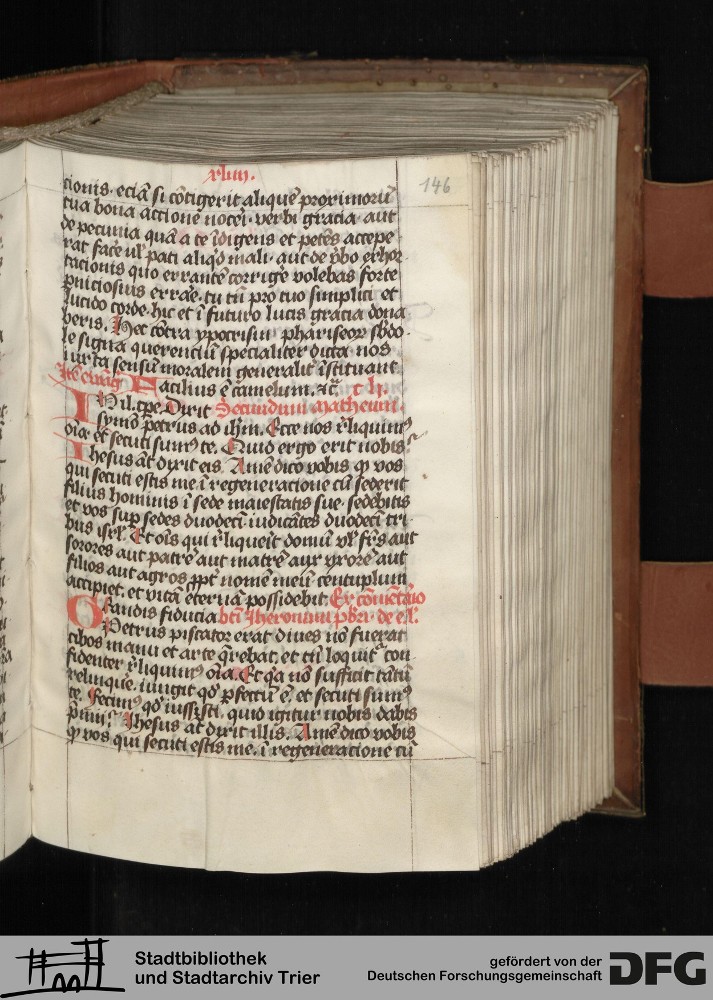 xliiij.
146
cionis. eciā si cōtigerit aliquē proximorū
tua bona actione nocei. verbi gratia aut
de pecunia quā a te īdigens et petēs accepe
rat facē ul' pati aliqd mali. aut de vbo exhor
tacionis quo errantē corrigē volebas forte
pniciosius errare. tu tn pro tuo simplici et
lucido corde. hic et ī futuro lucis gratia dona
beris. Hec cōtra ypocrisin phariseor sbdo
le signa querenciū specialiter dicta. nos
iuxta sensū moralem generalit īstituant
Facilius ē camelum. &c.
In il. tpe. Dixit Secundum matheum.
symō petrus ad ihm. Ecce nos rliquim9
oīa. et secuti sum9 te. Quid ergo erit nobis?
Ihesus at dixit eis. Amē dico vobis q vos
qui secuti estis me. ī regeneratione cū sederit
filius hominis ī sede maiestatis sue. sedebitis
et vos sup sedes duodecī. iudicātes duodecī tri
bus isrl. Et oīs qui rliqueit domū vl' frēs aut
sorores aut patrē aut matrē aut vxorē aut
filios aut agros ppt nomē meū. centuplum
accipiet. et vitā eternā possidebit. Ex cōmētario
Grandis fiducia btī Iheronimi pbri. de e. l.
Petrus piscator erat. dives nō fuerat
cibos manu et arte qrebat. et tn loquit con
fidenter rliquim9 oīa. Et qa nō sufficit tātū
relinque. iungit qd pfectū ē. et secuti sum9
te. Fecim9 qd iussisti. quid igitur nobis dabis
pmij? Ihesus at dixit illis. Amē dico vobis
q vos qui secuti estis me. ī regeneracione cū
Stadtbibliothek
und Stadtarchiv Trier
gefördert von der
Deutschen Forschungsgemeinschaft DFG